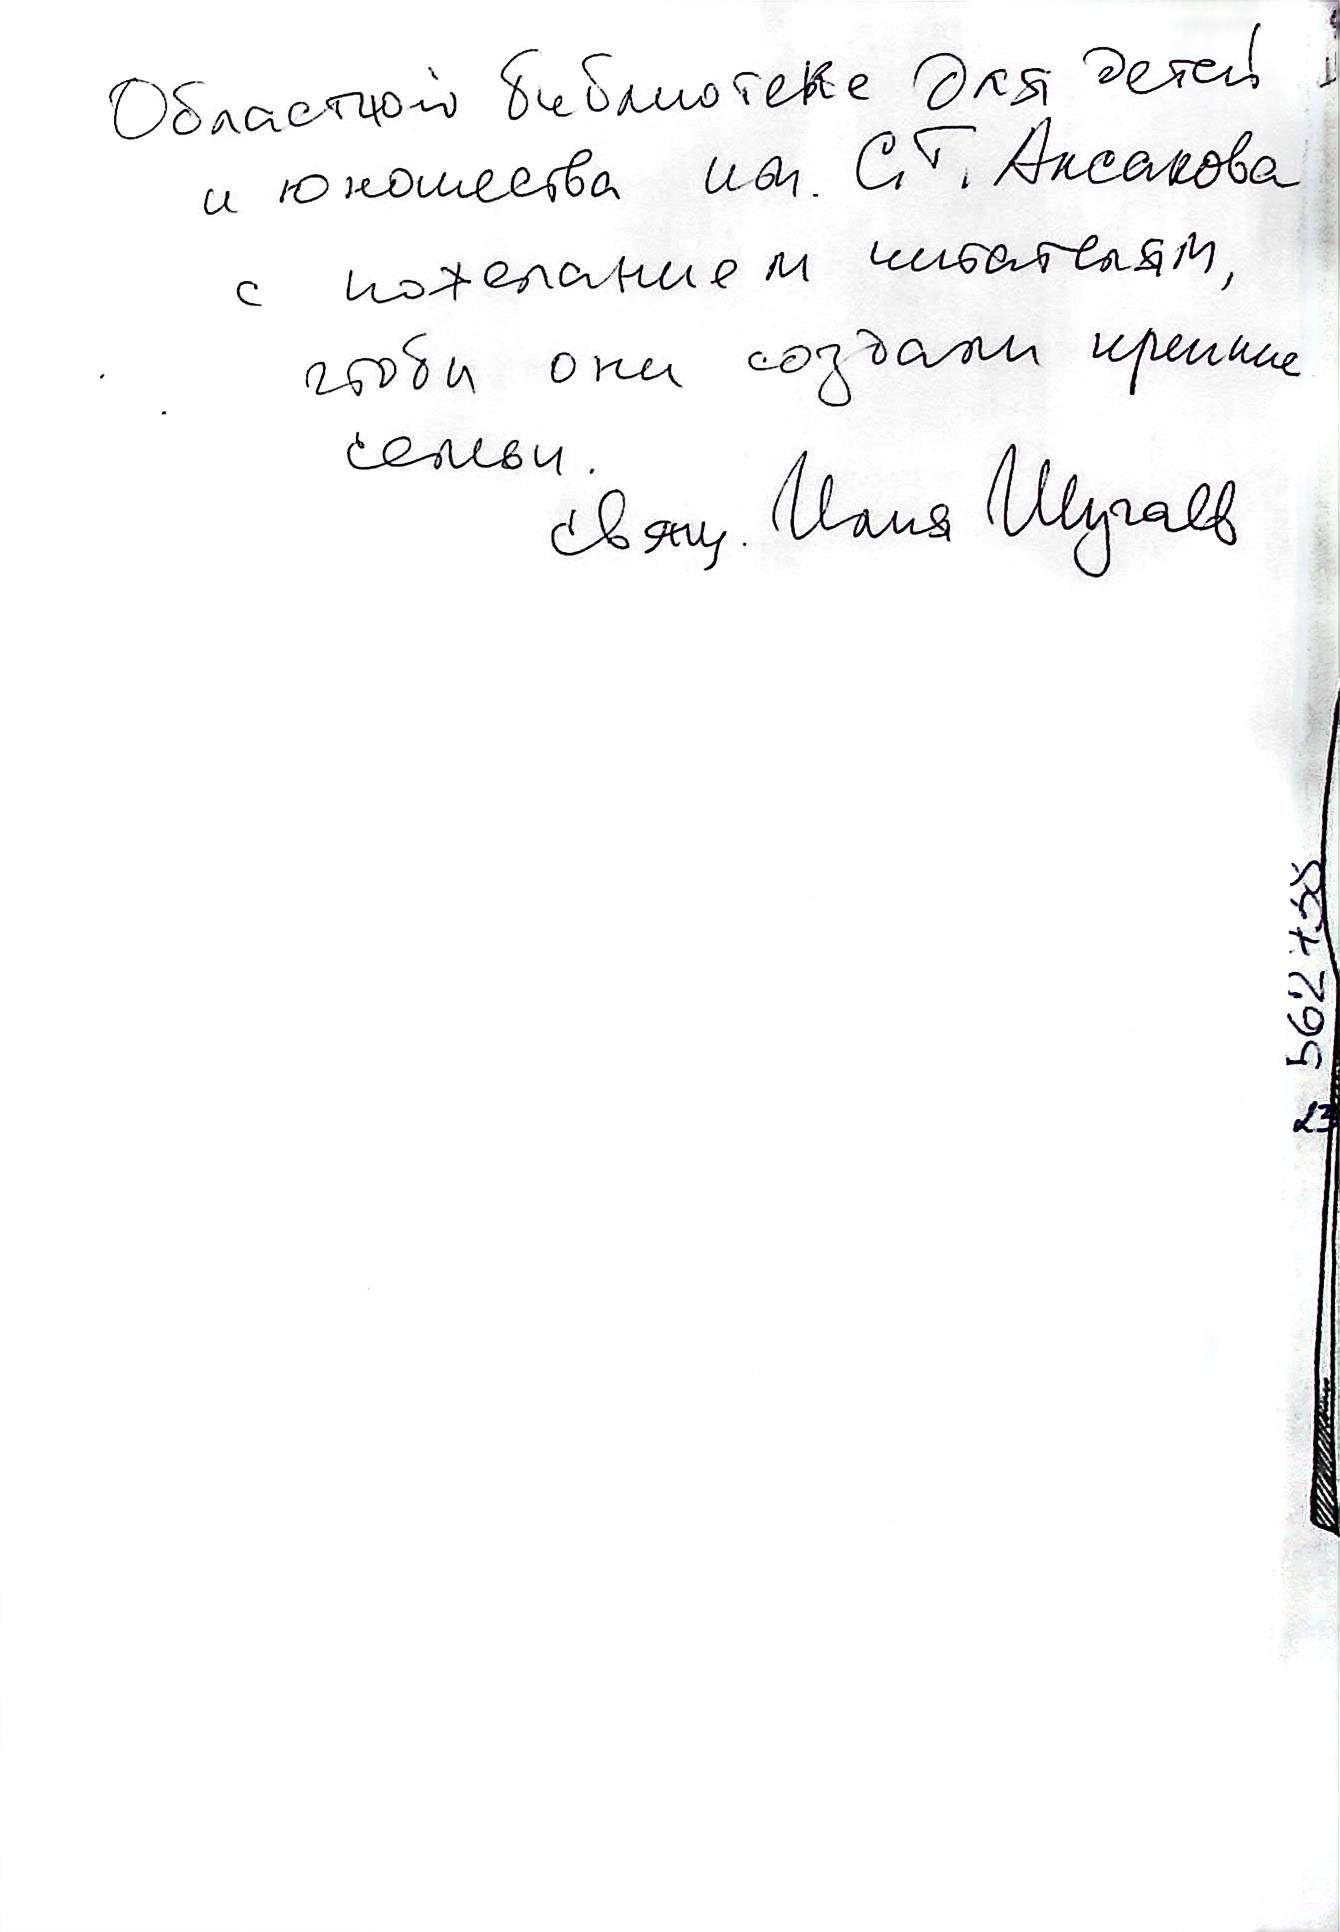 Областной библиотеке для детей
и юношества им. С.Т. Аксакова
с пожеланием читателям,
чтобы они создали крепкие
семьи.
свящ. Илия Шугаев